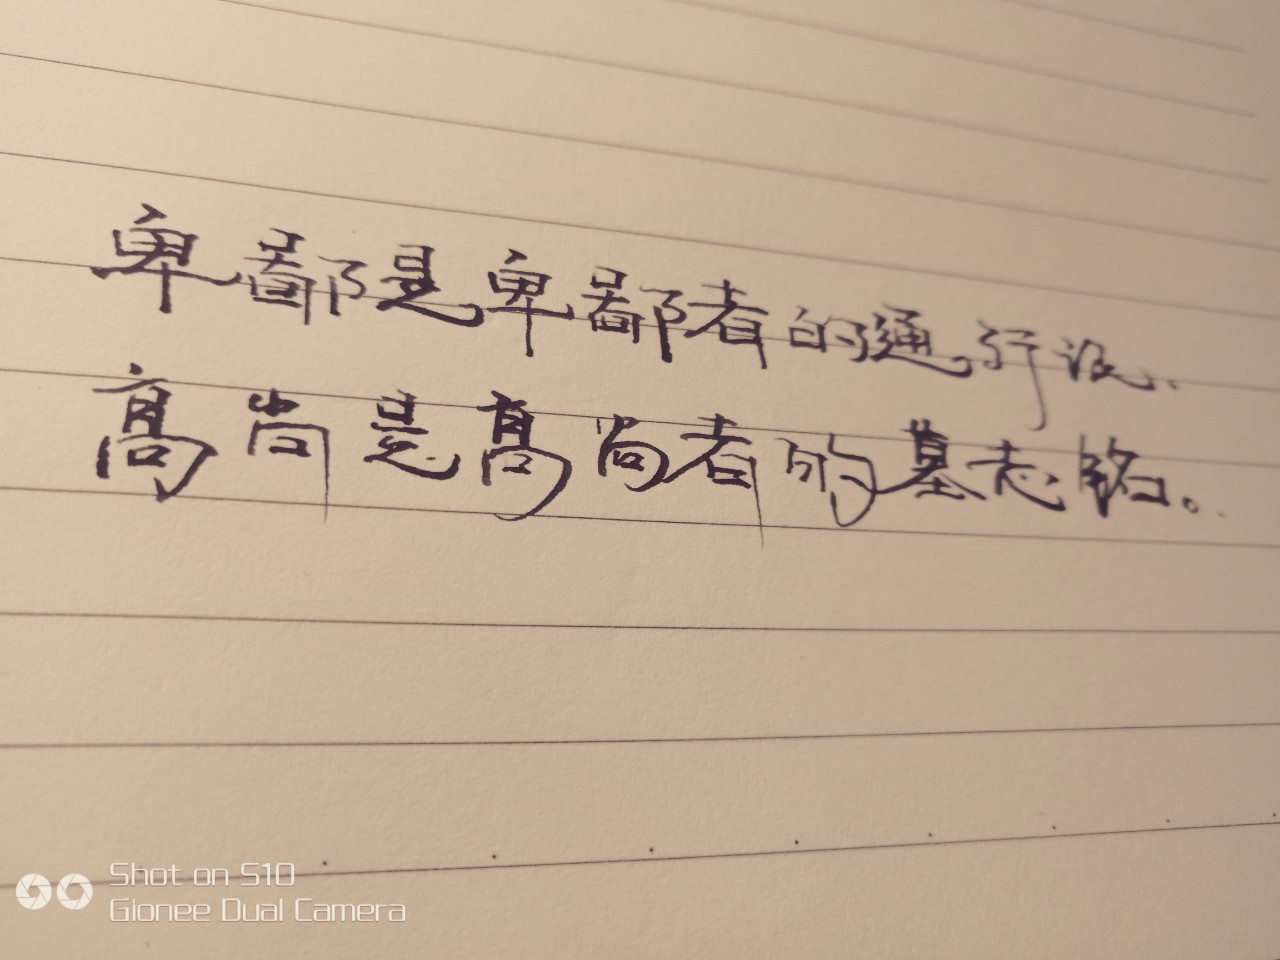 卑鄙是卑鄙者的通行证、
高尚是高尚者的墓志铭。
Shot on S10
Gionee Dual Camera